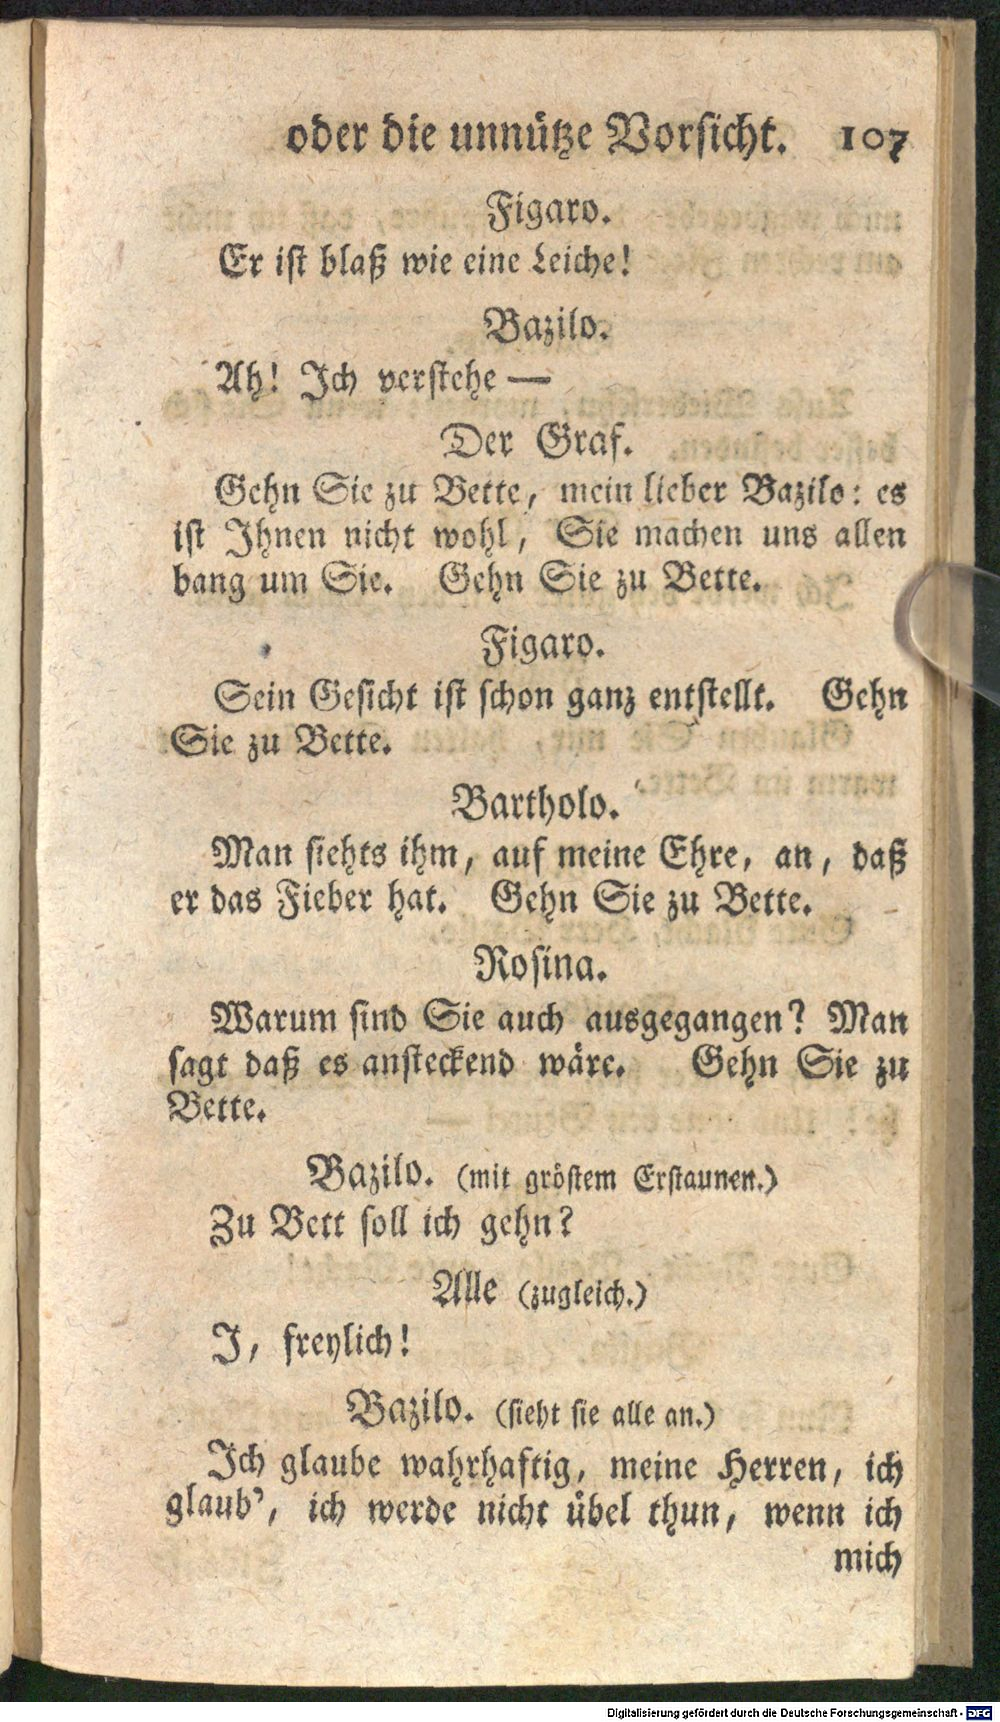 oder die unnütze Vorsicht. 107
Figaro.
Er ist blaß wie eine Leiche!
Bazilo.
Ah! Ich verstehe —
Der Graf.
Gehn Sie zu Bette, mein lieber Bazilo: es
ist Ihnen nicht wohl, Sie machen uns allen
bang um Sie. Gehn Sie zu Bette.
Figaro.
Sein Gesicht ist schon ganz entstellt. Gehn
Sie zu Bette.
Bartholo.
Man siehts ihm, auf meine Ehre, an, daß
er das Fieber hat. Gehn Sie zu Bette.
Rosina.
Warum sind Sie auch ausgegangen? Man
sagt daß es ansteckend wäre. Gehn Sie zu
Bette.
Bazilo. (mit gröstem Erstaunen.)
Zu Bett soll ich gehn?
Alle (zugleich.)
J, freylich!
Bazilo. (sieht sie alle an.)
Ich glaube wahrhaftig, meine Herren, ich
glaub', ich werde nicht übel thun, wenn ich
mich
Digitalisierung gefördert durch die Deutsche Forschungsgemeinschaft - DFG